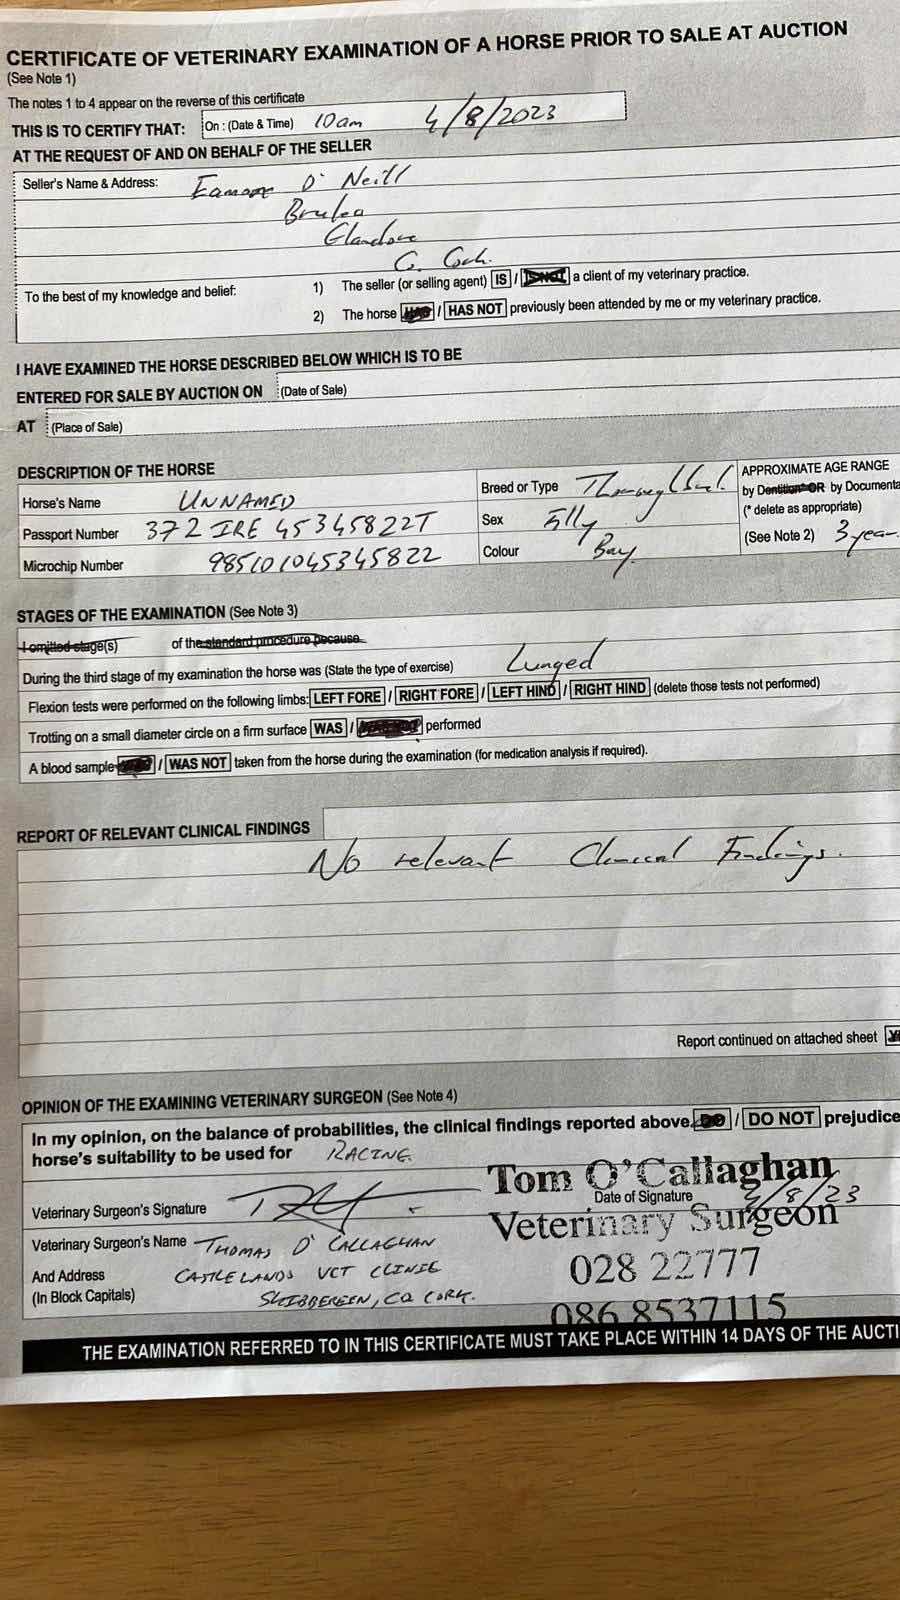 CERTIFICATE OF VETERINARY EXAMINATION OF A HORSE PRIOR TO SALE AT AUCTION
(See Note 1)
The notes 1 to 4 appear on the reverse of this certificate
THIS IS TO CERTIFY THAT: On : (Date & Time) 10am 4/8/2023
AT THE REQUEST OF AND ON BEHALF OF THE SELLER
Seller's Name & Address: Eamonn O'Neill
Glandore
Co. Cork.
To the best of my knowledge and belief: 1) The seller (or selling agent) IS / IS NOT a client of my veterinary practice.
2) The horse HAS / HAS NOT previously been attended by me or my veterinary practice.
I HAVE EXAMINED THE HORSE DESCRIBED BELOW WHICH IS TO BE
ENTERED FOR SALE BY AUCTION ON (Date of Sale)
AT (Place of Sale)
DESCRIPTION OF THE HORSE
Horse's Name UNNAMED
Passport Number 372 IRE 45345822T
Microchip Number 985101045345822
Breed or Type Thoroughbred.
Sex Filly
Colour Bay.
APPROXIMATE AGE RANGE
by Dentition* OR by Documenta
(* delete as appropriate)
(See Note 2) 3 year.
STAGES OF THE EXAMINATION (See Note 3)
I omitted stage(s) of the standard procedure because
During the third stage of my examination the horse was (State the type of exercise) Lunged
Flexion tests were performed on the following limbs: LEFT FORE / RIGHT FORE / LEFT HIND / RIGHT HIND (delete those tests not performed)
Trotting on a small diameter circle on a firm surface WAS / WAS NOT performed
A blood sample WAS / WAS NOT taken from the horse during the examination (for medication analysis if required).
REPORT OF RELEVANT CLINICAL FINDINGS
No relevant Clinical Findings.
Report continued on attached sheet
OPINION OF THE EXAMINING VETERINARY SURGEON (See Note 4)
In my opinion, on the balance of probabilities, the clinical findings reported above DO / DO NOT prejudice
horse's suitability to be used for RACING.
Tom O'Callaghan
Veterinary Surgeon's Signature
Date of Signature 4/8/23
Veterinary Surgeon
Veterinary Surgeon's Name THOMAS O'CALLAGHAN
028 22777
And Address CASTLELANDS VET CLINIC
(In Block Capitals) SKIBBEREEN, CO CORK.
086 8537115
THE EXAMINATION REFERRED TO IN THIS CERTIFICATE MUST TAKE PLACE WITHIN 14 DAYS OF THE AUCTI